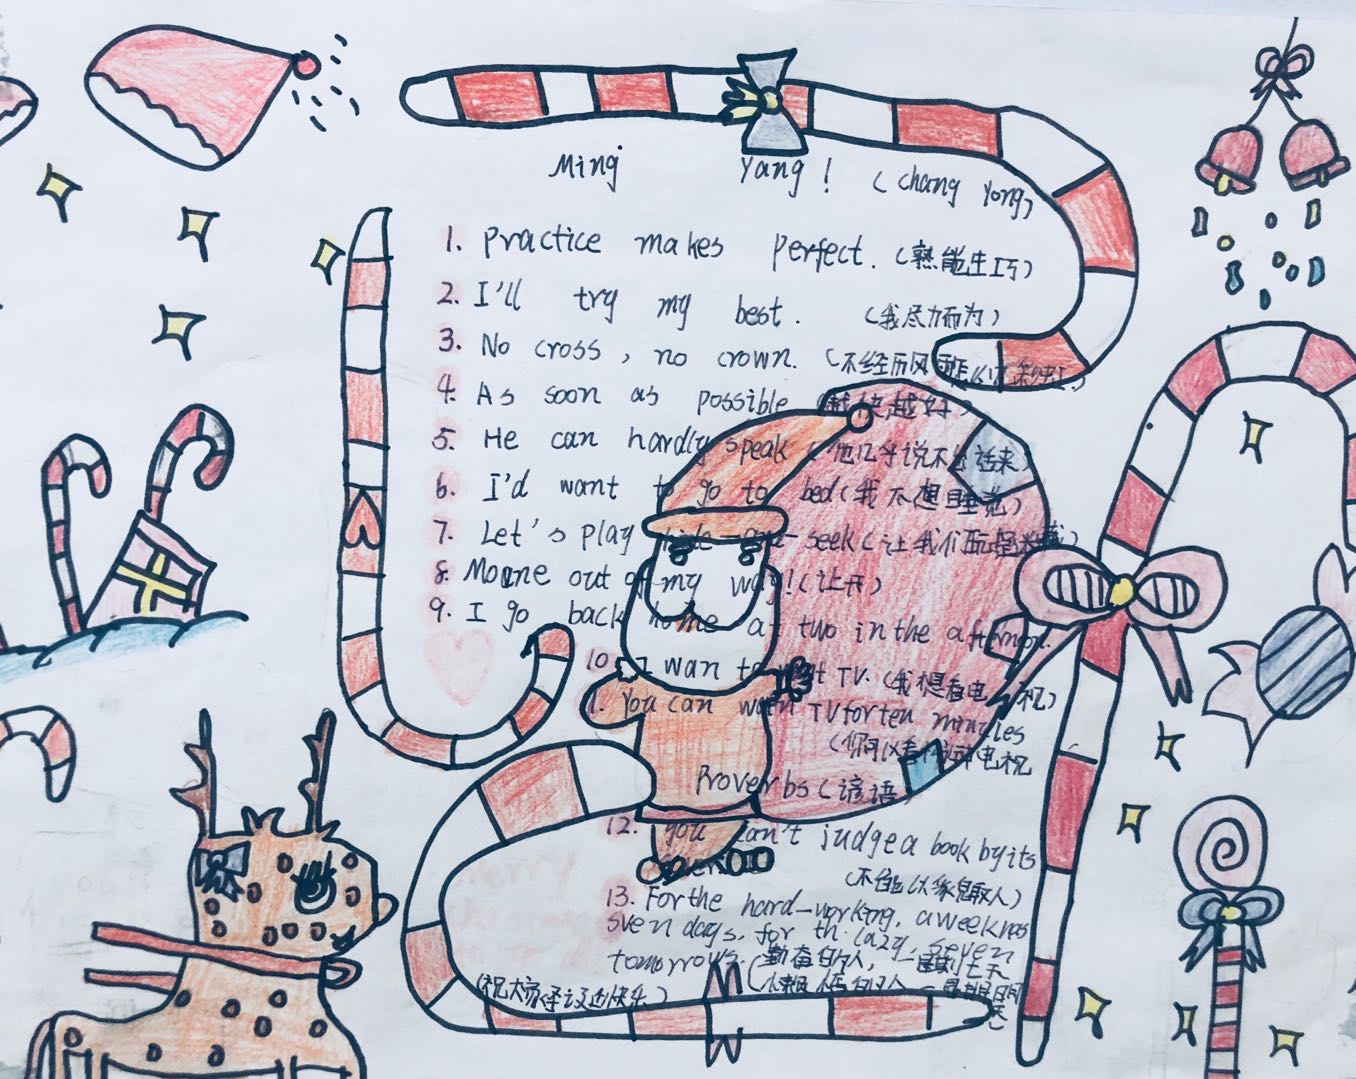 Ming Yang! (Chang Yong)
1. Practice makes perfect. (熟能生巧)
2. I'll try my best. (我尽力而为)
3. No cross, no crown. (不经历风
4. As soon as possible (越快越好)
5. He can hardly speak (他几乎说不出话来)
6. I'd want to go to bed (我不想睡觉)
7. Let's play hide-and-seek (让我们玩捉迷藏)
8. out of my way! (让开)
9. I go back home at two in the afternoon.
10. I wan to TV. (我想看电视)
You can TV for ten
Proverbs (谚语)
12. you can't judge a book by its
(不能以
13. For the hard-working, a week has
seven days, for the lazy, seven
tomorrows.
(祝大家圣诞快乐)